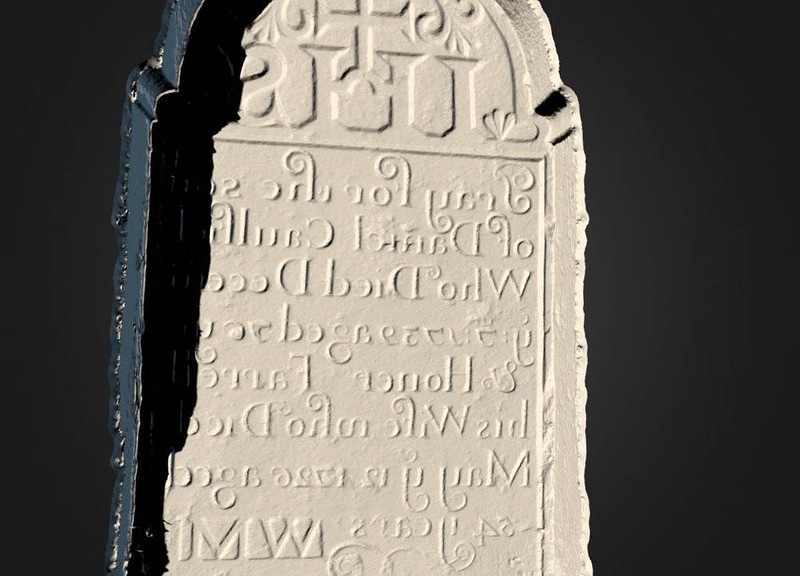 IHS
Pray for the so
of Daniel Caulfi
Who Died Dece
1739 aged 76 y
& Honer Farre
his Wife who Died
May y 12 1726 aged
54 years